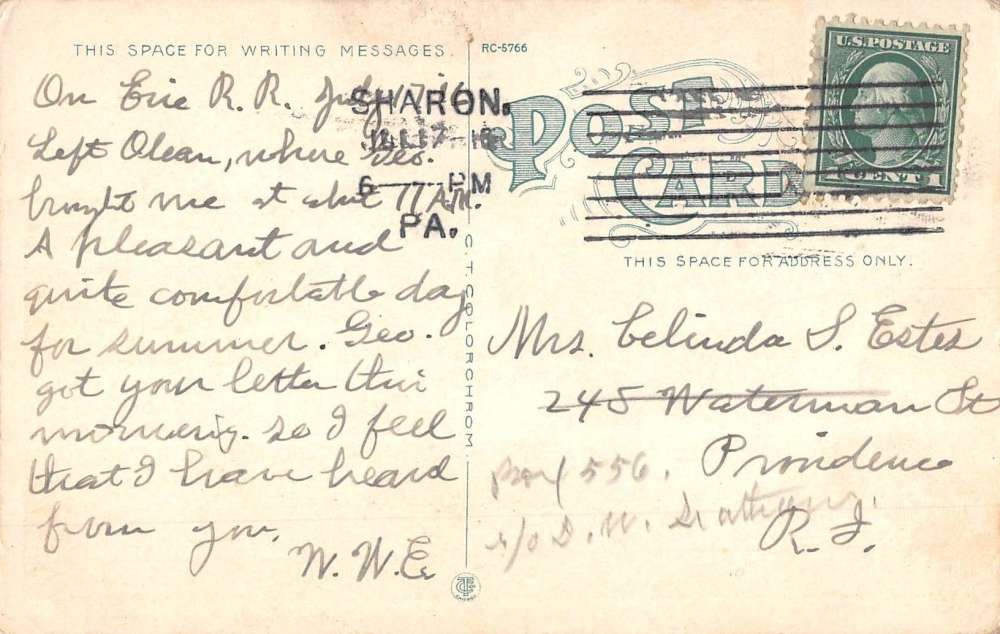 THIS SPACE FOR WRITING MESSAGES.
RC-5766
On Erie R. R. July 17, 16
Left Olean, where Geo.
brought me at abut 11 A.M.
A pleasant and
quite comfortable day
for summer. Geo.
got your letter this
morning. so I feel
that I have heard
from you.
W. W. E.
SHARON.
JUL 17 16
6 PM
PA.
C. T. COLORCHROM.
POST
CARD
U.S. POSTAGE
CENT 1
THIS SPACE FOR ADDRESS ONLY.
Mrs. Celinda S. Estes
245 Waterman St
Providence
R. I.
Box 556.
c/o D. W.